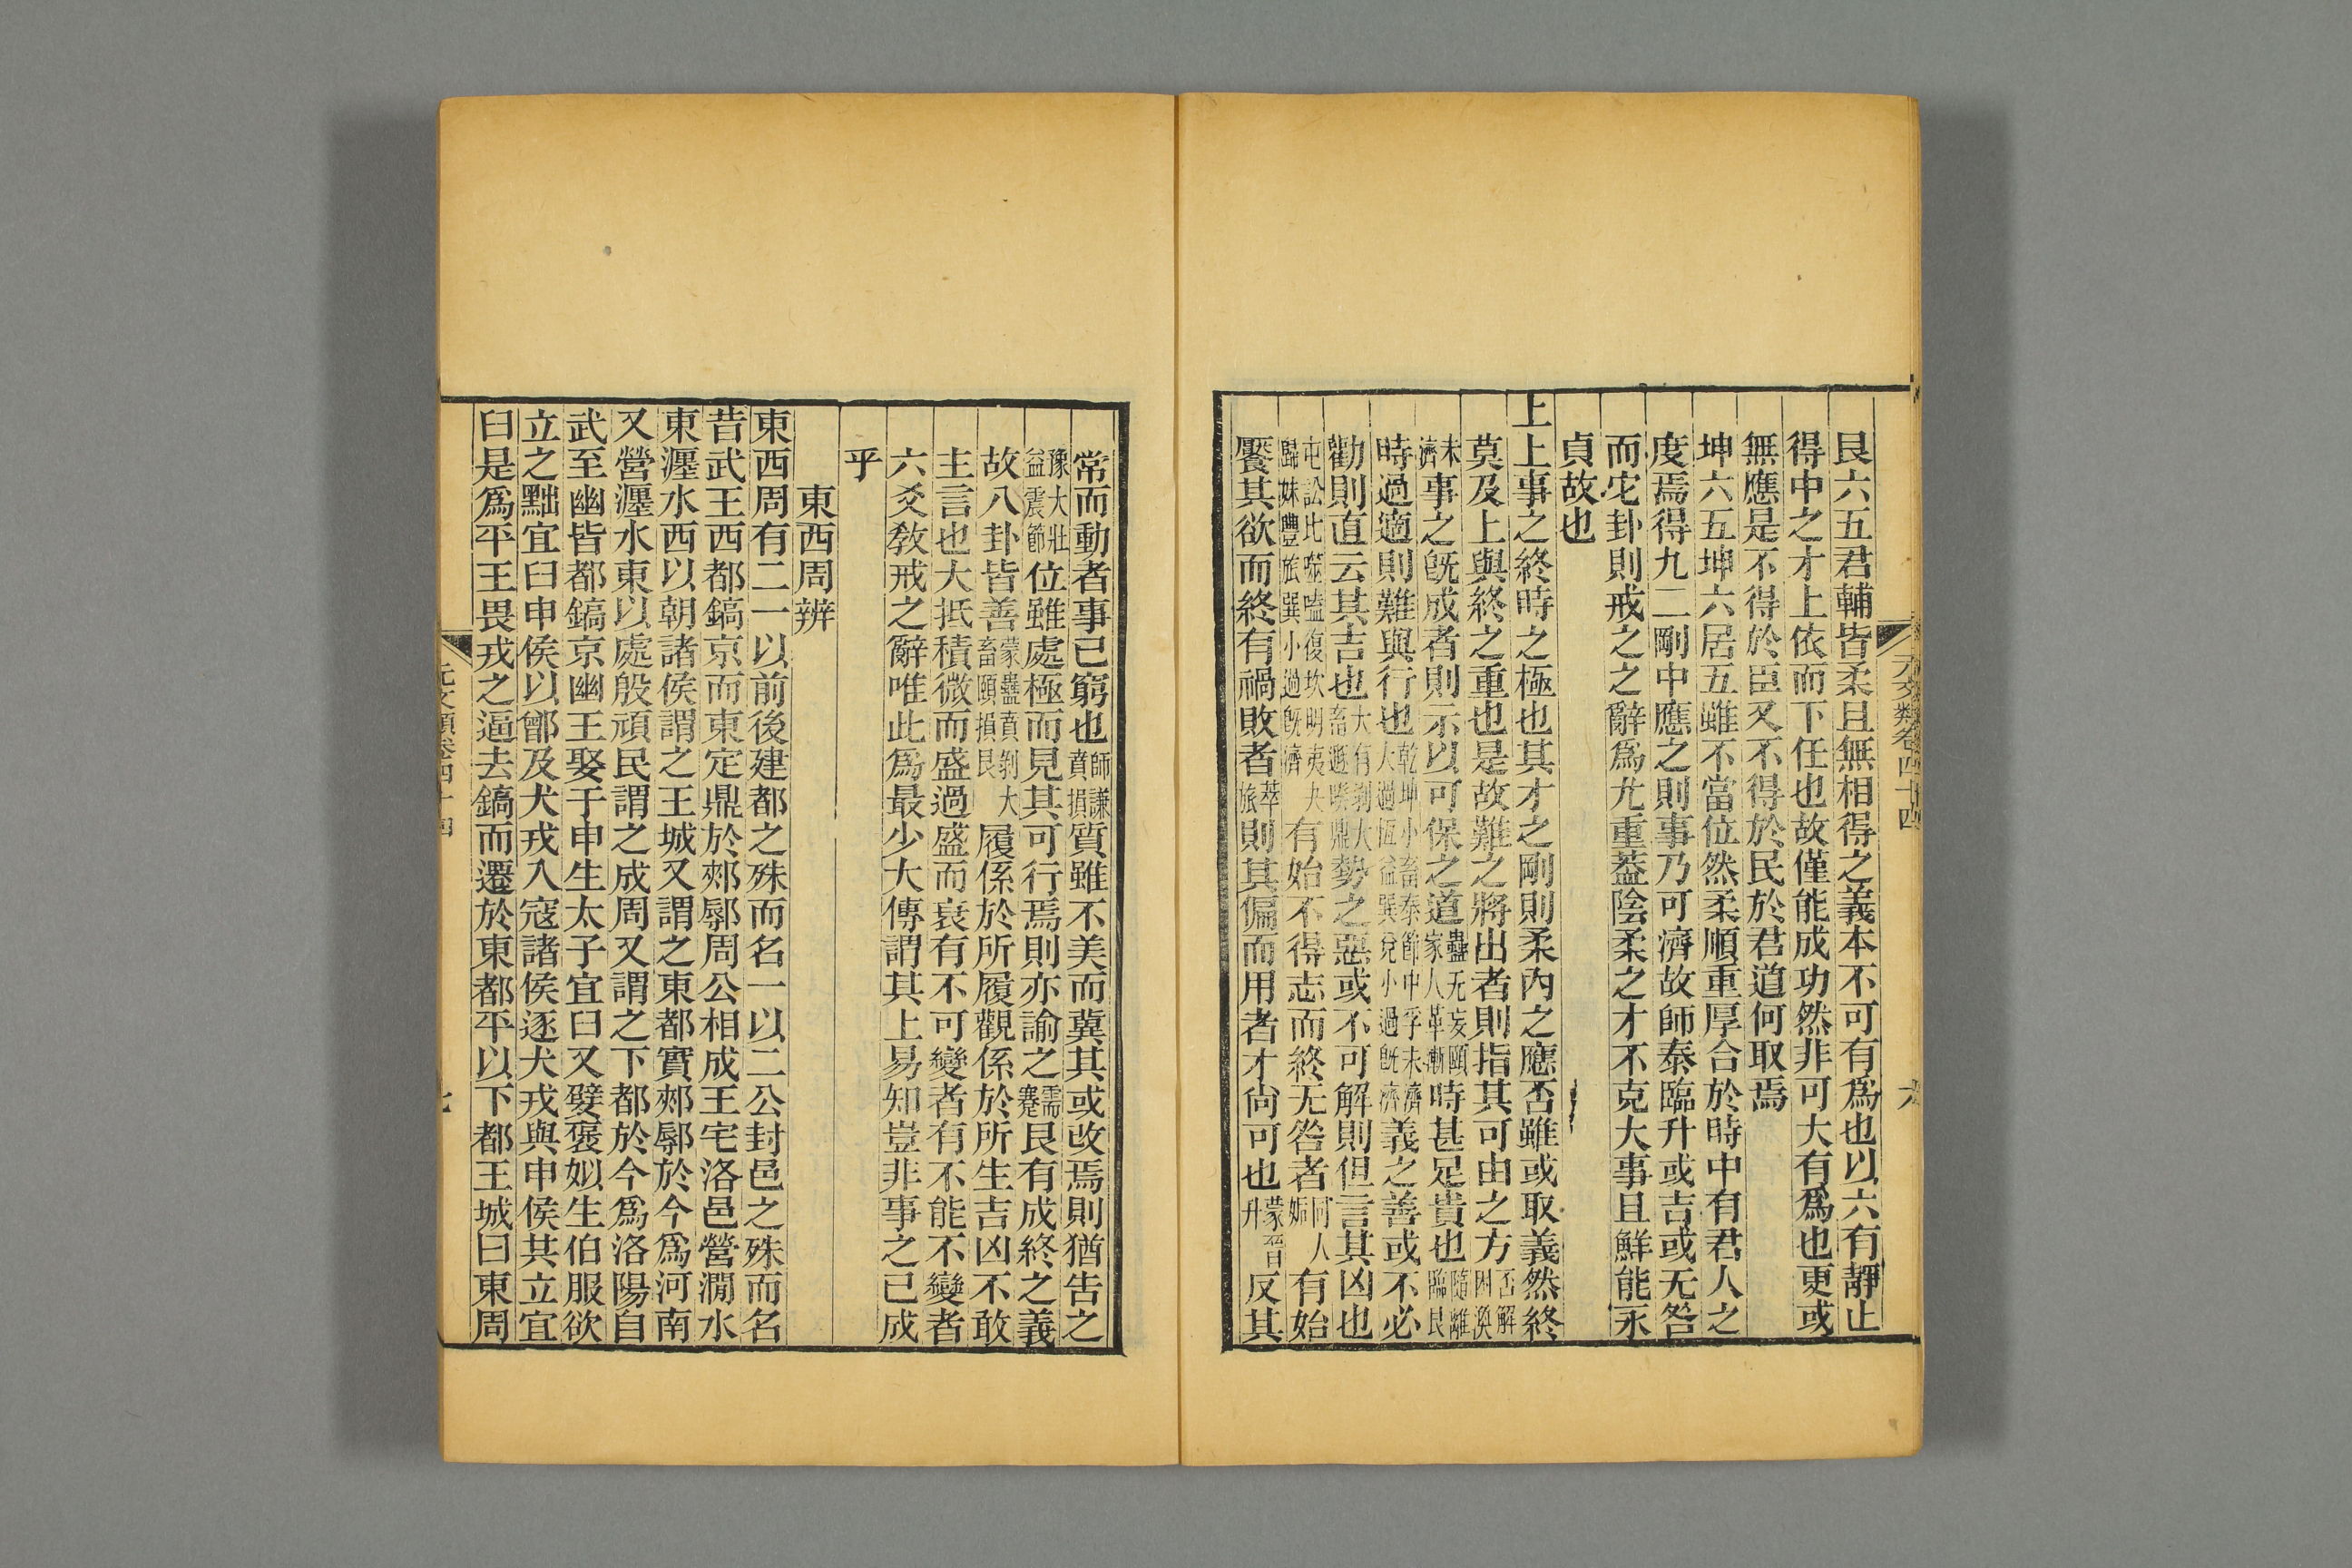 艮六五君輔皆柔且無相得之義本不可有爲也以六有靜止
得中之才上依而下任也故僅能成功然非可大有爲也更或
無應是不得於臣又不得於民於君道何取焉
坤六五坤六居五雖不當位然柔順重厚合於時中有君人之
度焉得九二剛中應之則事乃可濟故師泰臨升或吉或无咎
而它卦則戒之之辭爲尤重蓋陰柔之才不克大事且鮮能永
貞故也
上上事之終時之極也其才之剛則柔內之應否雖或取義然終
莫及上與終之重也是故難之將出者則指其可由之方否解困渙
未濟事之旣成者則示以可保之道蠱无妄頤家人革漸時甚足貴也隨離臨艮
時過適則難與行也乾坤小畜泰節中孚未濟大過恆益巽兌小過旣濟義之善或不必
勸則直云其吉也大有剝大畜遯睽鼎勢之惡或不可解則但言其凶也
屯訟比噬嗑復坎明夷夬歸妹豐旅巽小過旣濟有始不得志而終无咎者同人姤有始
饜其欲而終有禍敗者萃旅則其偏而用者才尙可也蒙晉升反其
元文類卷四十四
六
常而動者事已窮也師謙賁損質雖不美而冀其或改焉則猶告之
豫大壯益震節位雖處極而見其可行焉則亦諭之需蹇艮有成終之義
故八卦皆善蒙蠱賁剝大畜頤損艮履係於所履觀係於所生吉凶不敢
主言也大抵積微而盛過盛而衰有不可變者有不能不變者
六爻敎戒之辭唯此爲最少大傳謂其上易知豈非事之已成
乎
東西周辨
東西周有二一以前後建都之殊而名一以二公封邑之殊而名
昔武王西都鎬京而東定鼎於郟鄏周公相成王宅洛邑營澗水
東瀍水西以朝諸侯謂之王城又謂之東都實郟鄏於今爲河南
又營瀍水東以處殷頑民謂之成周又謂之下都於今爲洛陽自
武至幽皆都鎬京幽王娶于申生太子宜臼又嬖褒姒生伯服欲
立之黜宜臼申侯以鄫及犬戎入寇諸侯逐犬戎與申侯其立宜
臼是爲平王畏戎之逼去鎬而遷於東都平以下都王城曰東周
元文類卷四十四
七